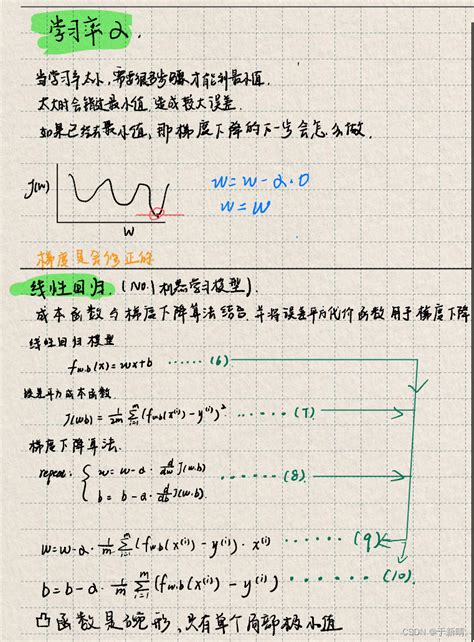 学习率 α.
当学习率太小,需要很多步骤才能到最小值.
太大时会错过最小值,造成较大误差.
如果已经在最小值,那梯度下降的下一步会怎么做.
J(w)
w
w = w - α·0
w = w
梯度是会修正的
线性回归.(No.1机器学习模型).
成本函数与梯度下降算法结合,并将误差平方代价函数用于梯度下降
线性回归模型
f w.b(x) = wx+b ······(6)
误差平方成本函数
J(wb) = 1/2m Σ(i=1, m) (f w.b(x⁽ⁱ⁾) - y⁽ⁱ⁾)² ······(7)
梯度下降算法.
repeat: { w = w - α · d/dw J(w.b) ······(8)
b = b - α · d/db J(w.b).
w = w - α · 1/m Σ(i=1, m) (f w.b(x⁽ⁱ⁾) - y⁽ⁱ⁾) · x⁽ⁱ⁾ ······(9)
b = b - α · 1/m Σ(i=1, m) (f w.b(x⁽ⁱ⁾) - y⁽ⁱ⁾) ······(10).
凸函数是碗形,只有单个局部极小值
CSDN @于新晴